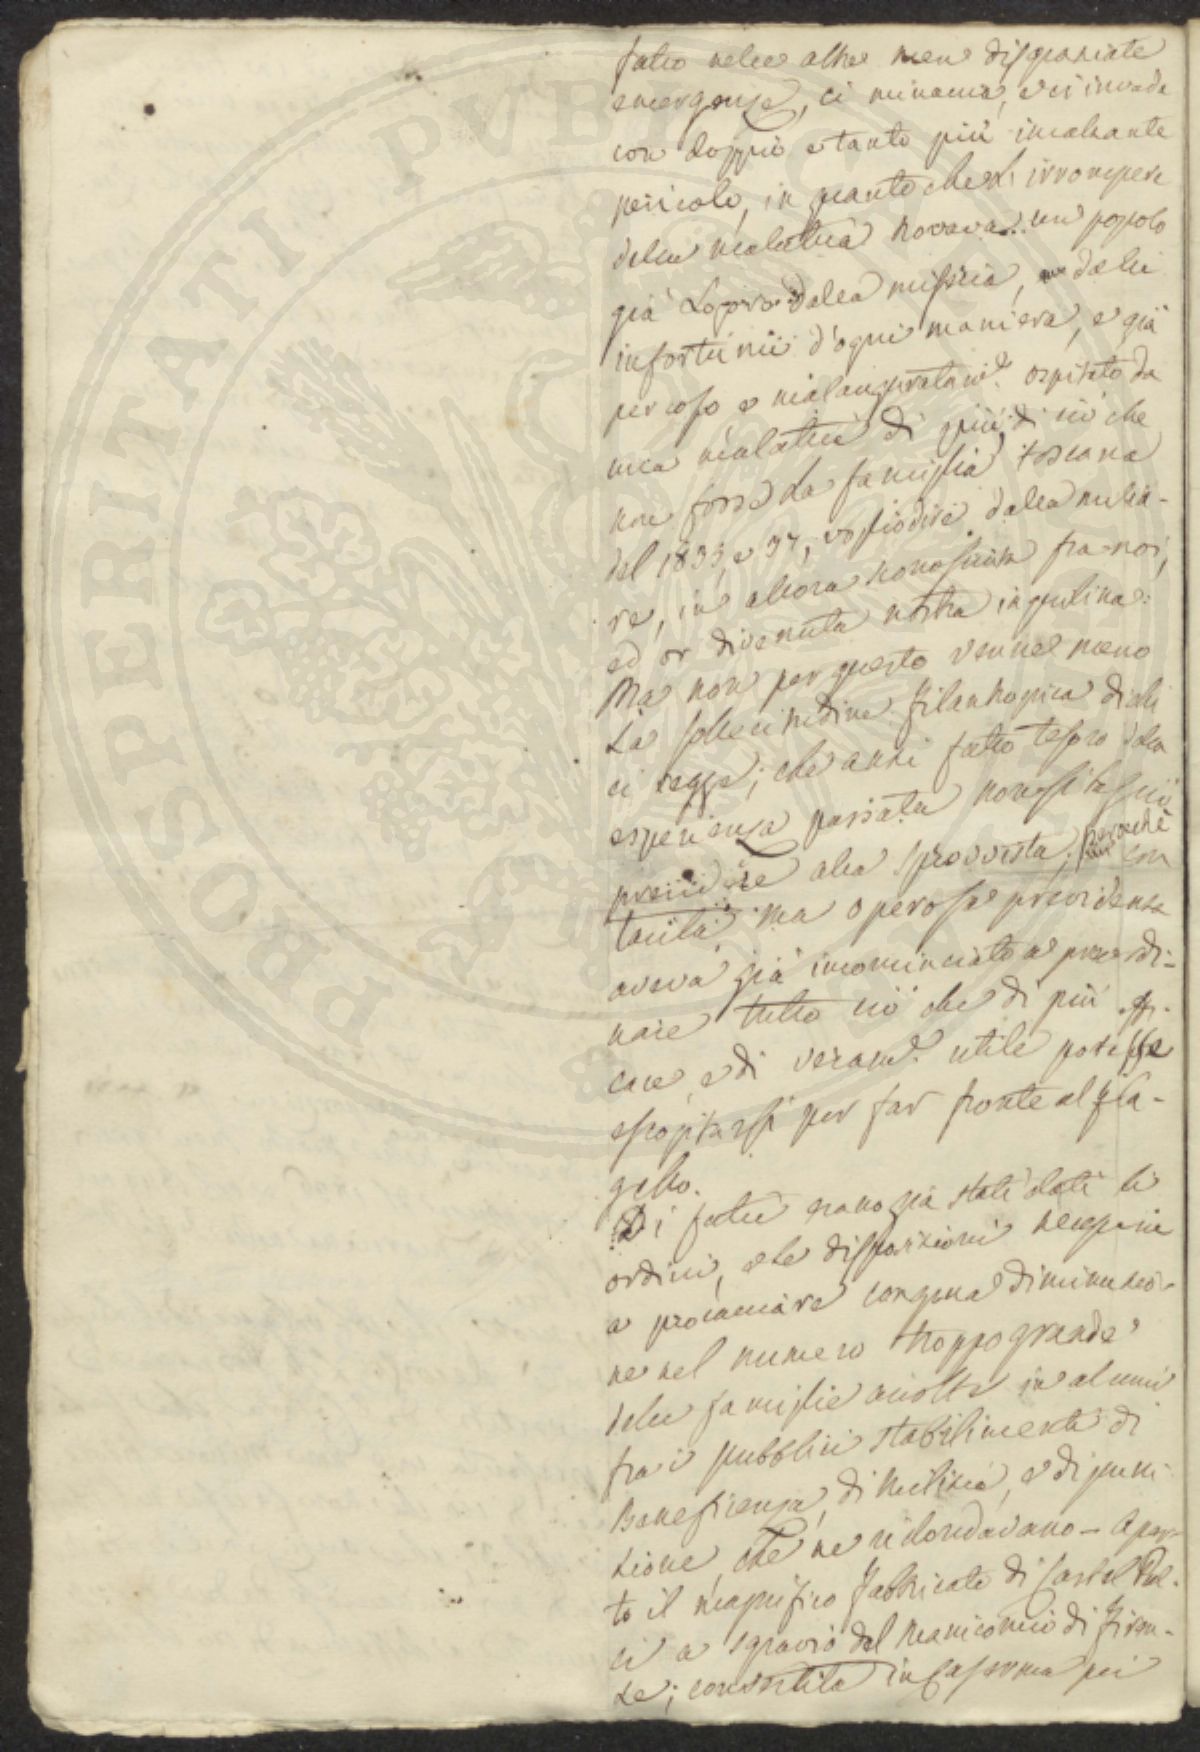 fatto nelle altre men disgraziate
emergenze, ci minaccia, e ci invade
con doppio e tanto più incalzante
pericolo, in quanto che l' irrompere
della malattia trovava un popolo
già dalla miseria, e dalli
infortunii d'ogni maniera, e già
percosso e malauguratam.e ospitato da
una malattia di più di ciò che
non fosse la famiglia toscana
del 1835, e 37, voglio dire dalla milia-
re, in allora sconosciuta fra noi,
ed or divenuta nostra inquilina:
Ma non per questo venne meno
La sollecitudine filantropica di chi
ci regge; che anzi fatto tesoro della
esperienza passata non si lasciò
prendere alla sprovvista; perchè con
tacita ma operosa previdenza
aveva già incominciato a preordi-
nare tutto ciò che di più effi-
cace, e di veram.e utile potesse
escogitarsi per far fronte al fla-
gello.
Di fatti erano già stati dati li
ordini, e le disposizioni necessarie
a procacciare congrua diminuzio-
ne nel numero troppo grande
delle famiglie accolte in alcuni
fra i pubblici stabilimenti di
Beneficenza, di Milizia, e di puni
zione, che ne ridondavano - Aper-
to il magnifico fabbricato di Castel Pul-
ci a sgravio del Manicomio di Firen-
ze; convertita in Caserma pei
PROSPERITATI PVBLICAE